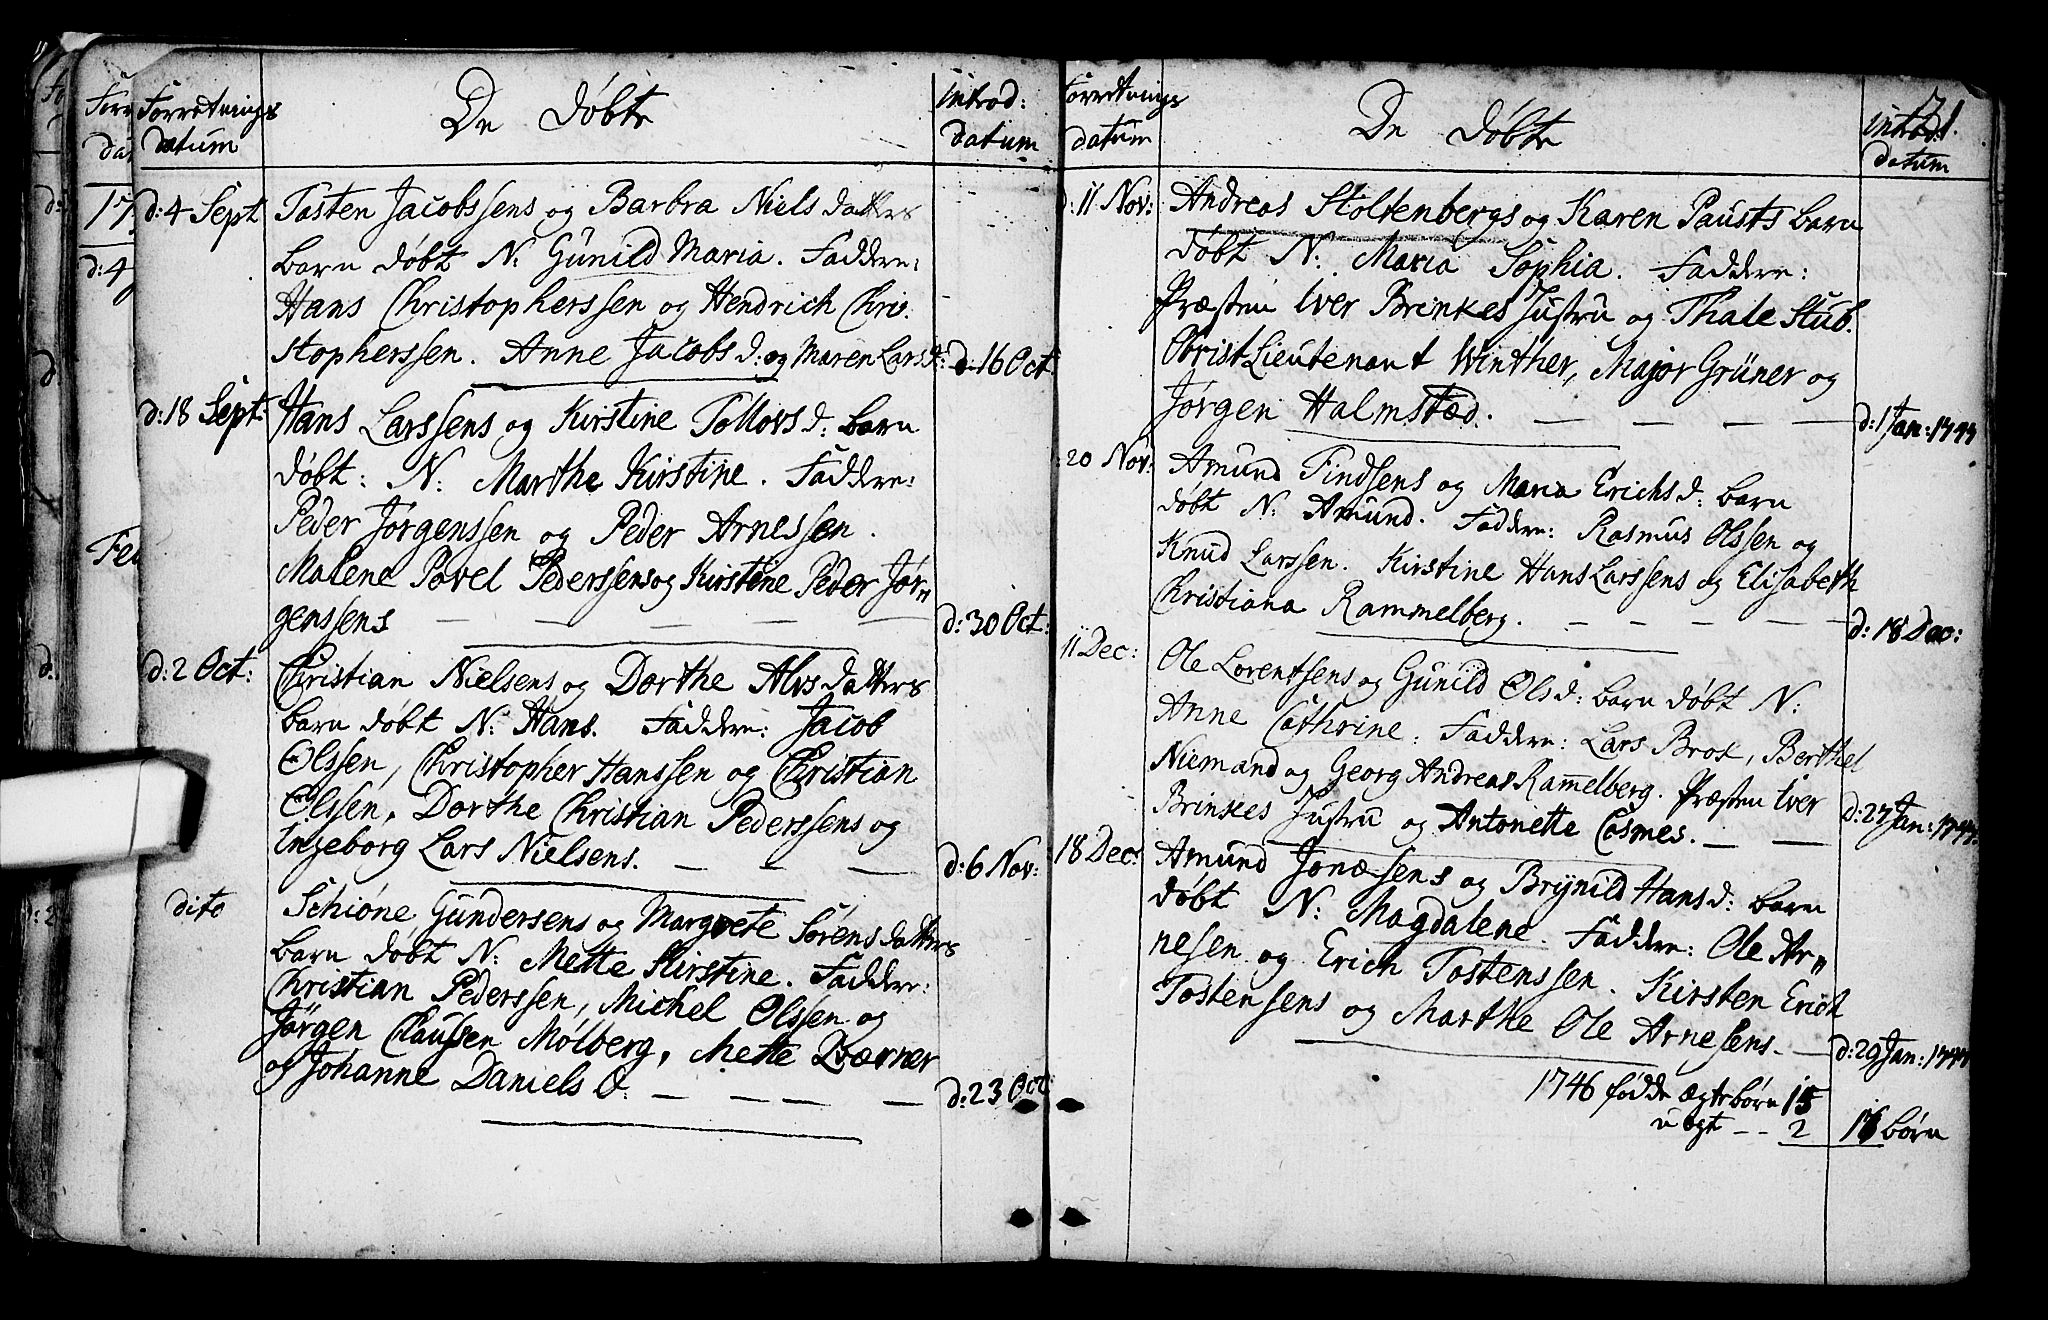 Forretnings
datum
De døbte
introd:
datum
d: 4 Sept
Tosten Jacobssens og Barbra Niels datters
barn døbt N: Gunild Maria. Faddere:
Hans Christopherssen og Hendrich Chri-
stopherssen. Anne Jacobs d: og Maren Lars d:
d: 16 Oct:
d: 18 Sept:
Hans Larssens og Kirstine Tollovs d: barn
døbt: N: Marthe Kirstine. Faddere:
Peder Jørgenssen og Peder Arnessen.
Malene Povel Pederssens og Kirstine Peder Jør"
genssens
d: 30 Oct:
d: 2 Oct:
Christian Nielsens og Dorthe Alvs datters
barn døbt N: Hans. Faddere: Jacob
Olssen, Christopher Hanssen og Christian
Olssen, Dorthe Christian Pederssens og
Ingeborg Lars Nielsens.
d: 6 Nov:
dito
Schiøne Gundersens og Margrete Sørens datters
barn døbt N: Mette Kirstine. Faddere:
Christian Pederssen, Michel Olssen og
Jørgen Claussen Mølberg, Mette Værner
og Johanne Daniels d:
d: 23 Oct
Forretnings
datum
De døbte
introd:
datum
d: 11 Nov:
Andreas Stoltenbergs og Karen Pausts barn
døbt N: Maria Sophia. Faddere:
Præsten Iver Brinkes Hustru og Thale Stub.
ObristLieutenant Winther, Major Grüner og
Jørgen Halmstæd.
d: 1 Jan: 1747
20 Nov:
Amund Findsens og Maria Erichs d: barn
døbt N: Amund. Faddere: Rasmus Olssen og
Knud Larssen. Kirstine Hans Larssens og Elisabeth
Christiana Rammelberg.
d: 18 Dec:
11 Dec:
Ole Lorentsens og Gunild Ols d: barn døbt N:
Anne Cathrine: Faddere: Lars Brox, Berthel
Niemand og Georg Andreas Rammelberg. Præsten Iver
Brinkes Hustru og Antonette Cosmes.
d: 27 Jan: 1747.
18 Dec:
Amund Jonæsens og Brynild Hans d: barn
døbt N: Magdalene. Faddere: Ole Ar"
nesen og Erich Tostenssen. Kirsten Erich
Tostensens og Marthe Ole Arnesens.
d: 29 Jan: 1747
1746 fødde ægte børn 15
uægt - - 2
17 børn